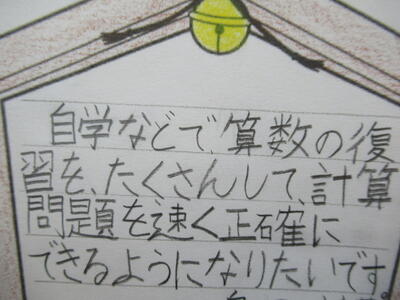 自学などで、算数の復
習を、たくさんして、計算
問題を速く正確に
できるようになりたいです。